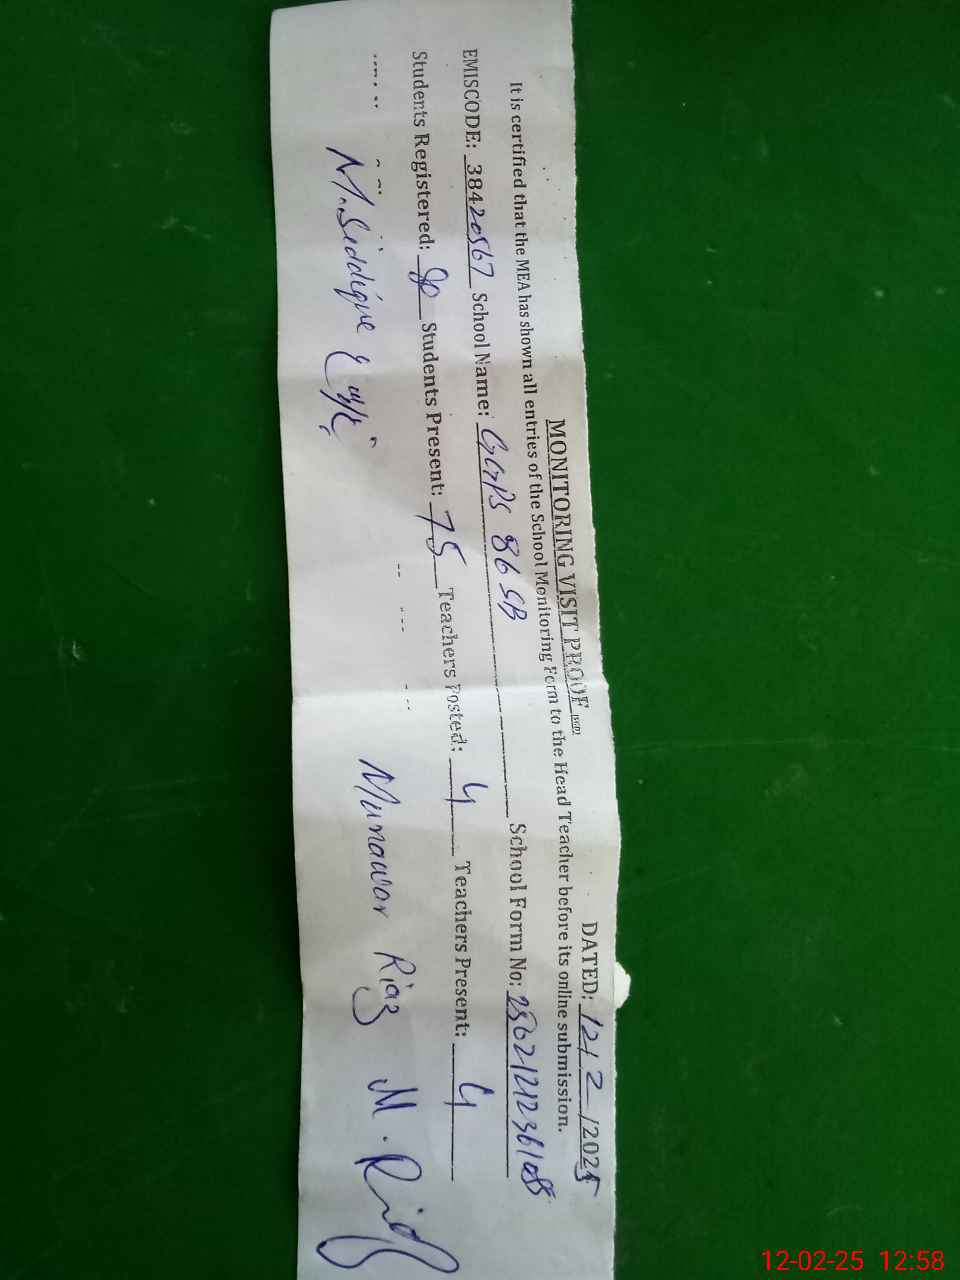 MONITORING VISIT PROOF DATED: 12/2/2025
It is certified that the MEA has shown all entries of the School Monitoring Form to the Head Teacher before its online submission.
EMISCODE: 38420567 School Name: GGPS 86 SB School Form No:
Students Registered: Students Present: 75 Teachers Posted: 4 Teachers Present: 4
M. Siddique Munawar Riaz M. Riaz
12-02-25 12:58